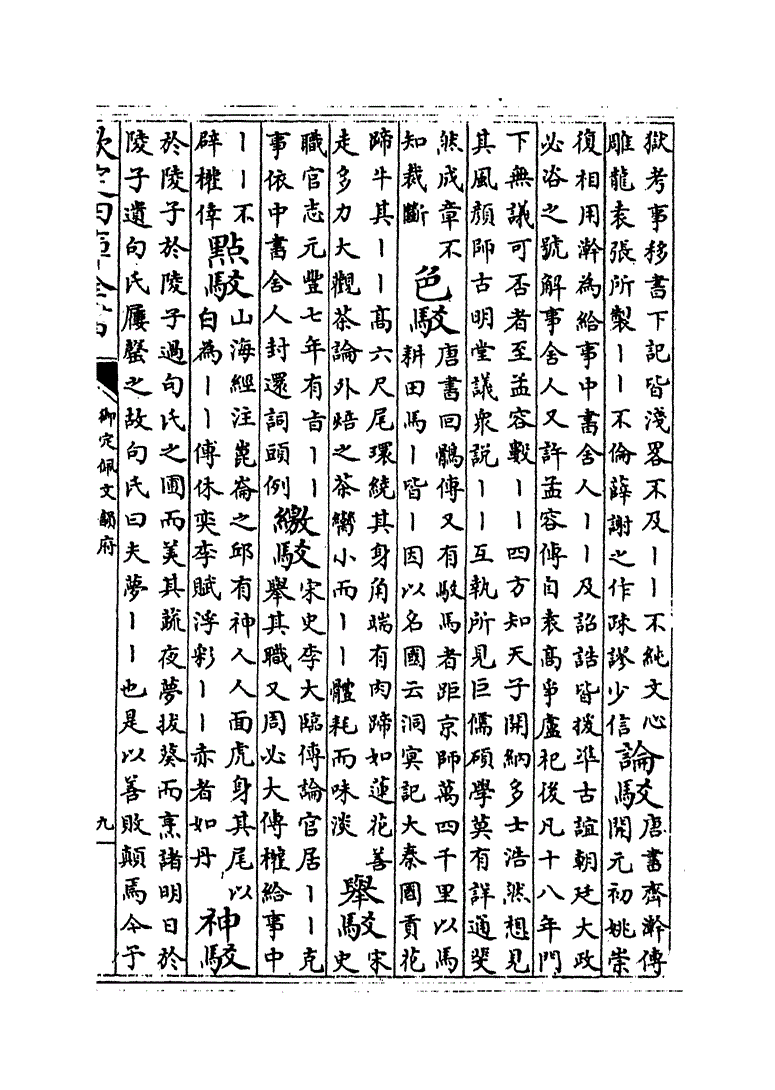 獄考事移書下記皆淺畧不及丨丨不純文心
雕龍袁張所製丨丨不倫薛謝之作踈謬少信
論駮
唐書齊澣傳
開元初姚崇
復相用澣為給事中書舍人丨丨及詔誥皆援凖古誼朝廷大政
必咨之號解事舍人又許孟容傳自袁高爭盧杞後凡十八年門
下無議可否者至孟容數丨丨四方知天子開納多士浩然想見
其風顔師古明堂議衆説丨丨互執所見巨儒碩學莫有詳通斐
然成章不
知裁斷
色駮
唐書回鶻傳又有駮馬者距京師萬四千里以馬
耕田馬丨皆丨因以名國云洞㝠記大秦國貢花
蹄牛其丨丨高六尺尾環繞其身角端有肉蹄如蓮花善
走多力大觀茶論外焙之茶臠小而丨丨體耗而味淡
舉駮
宋
史
職官志元豐七年有旨丨丨
事依中書舍人封還詞頭例
繳駮
宋史李大臨傳論官居丨丨克
舉其職又周必大傳權給事中
丨丨不
辟權倖
點駮
山海經注崑崙之邱有神人人面虎身其尾以
白為丨丨傅休奕李賦浮彩丨丨赤者如丹
神駮
於陵子於陵子過句氏之圃而美其蔬夜夢拔葵而烹諸明日於
陵子遺句氏屨罄之故句氏曰夫夢丨丨也是以善敗顛焉今子
欽定四庫全書
御定佩文韻府
九